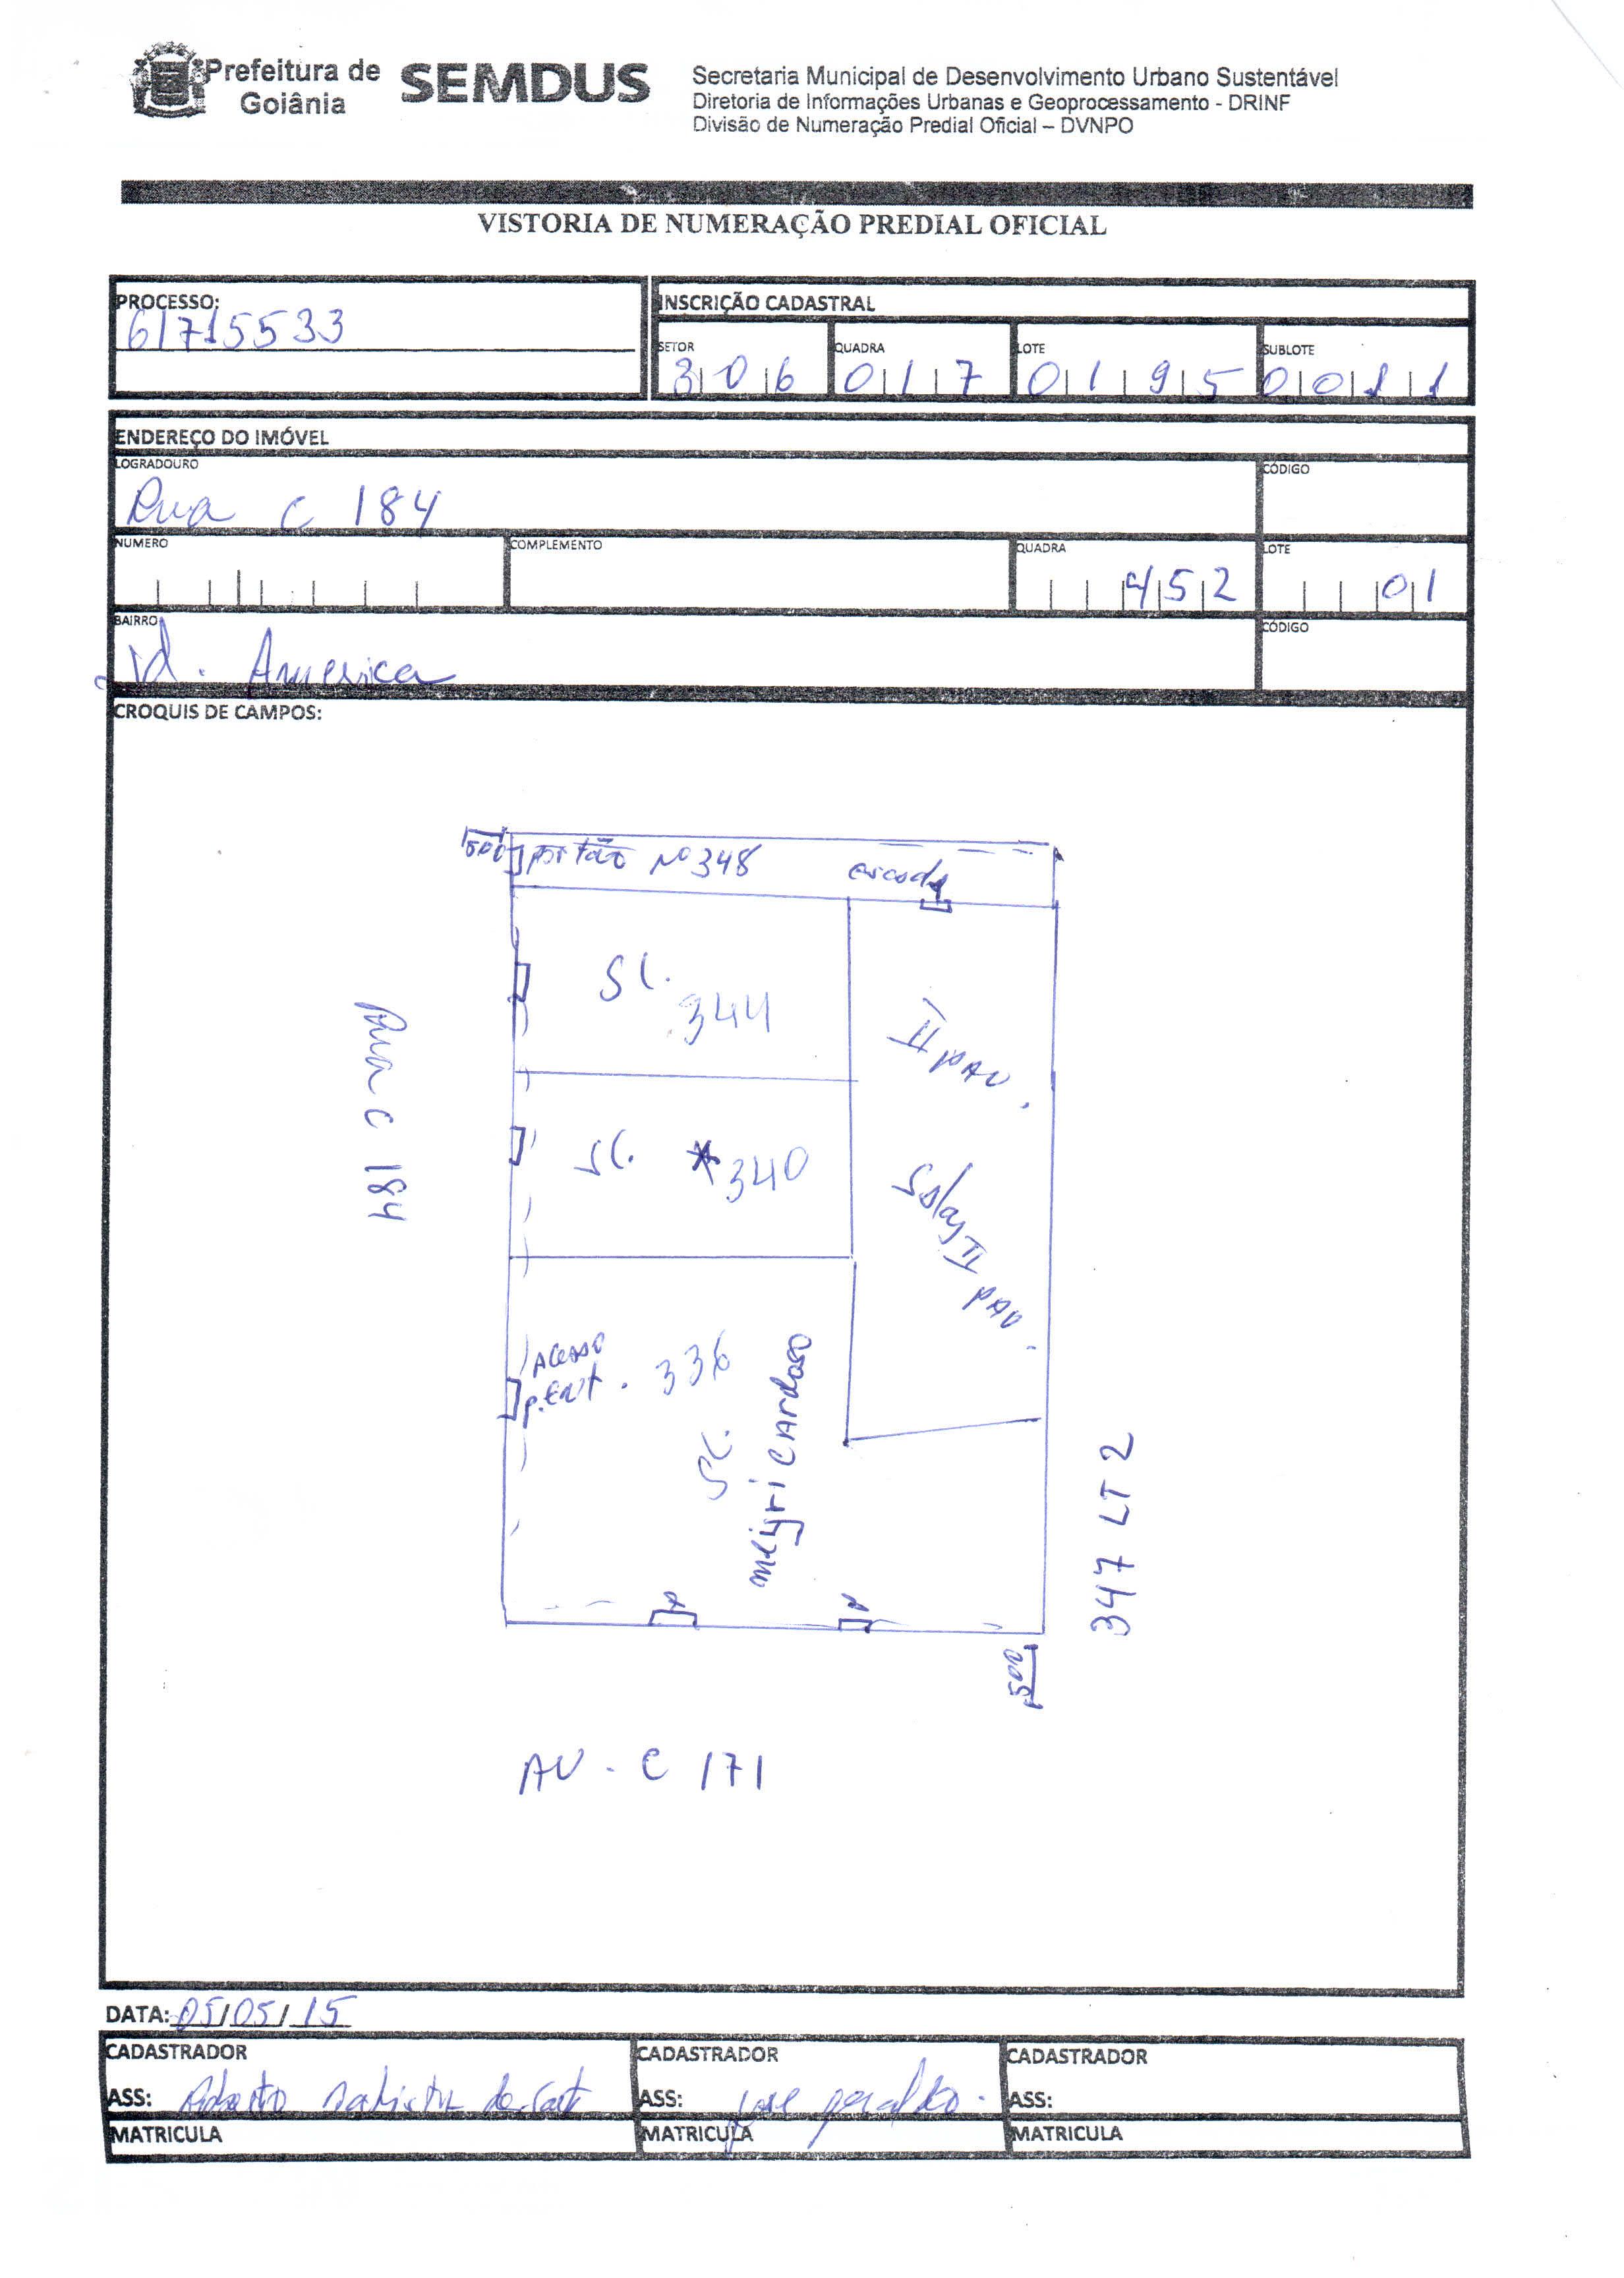 Prefeitura de Goiânia
SEMDUS
Secretaria Municipal de Desenvolvimento Urbano Sustentável
Diretoria de Informações Urbanas e Geoprocessamento - DRINF
Divisão de Numeração Predial Oficial – DVNPO
VISTORIA DE NUMERAÇÃO PREDIAL OFICIAL
PROCESSO:
61715533
INSCRIÇÃO CADASTRAL
SETOR QUADRA LOTE SUBLOTE
306 017 0195 0011
ENDEREÇO DO IMÓVEL
LOGRADOURO CÓDIGO
Rua C 184
NUMERO COMPLEMENTO QUADRA LOTE
452 01
BAIRRO CÓDIGO
Jd. America
CROQUIS DE CAMPOS:
500 portão Nº 348 escada
SL.
344
II PAV.
Rua C 184
SL. * 340
Salas II PAV.
Acesso
p. Ent. 336
SL.
meiyri Cardoso
347 LT 2
500
AV - C 171
DATA: 05/05/15
CADASTRADOR CADASTRADOR CADASTRADOR
ASS: ASS: jose geraldo. ASS:
MATRICULA MATRICULA MATRICULA